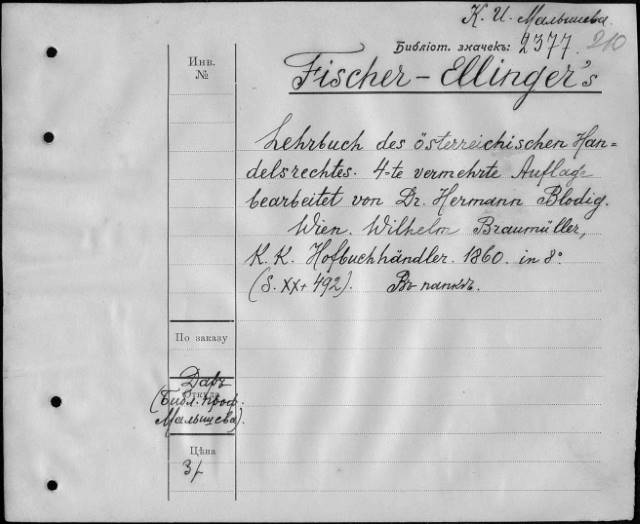 К. И. Малышева.
Библіот. значекъ: 2377. 210
Инв.
№
Fischer - Ellinger's
Lehrbuch des österreichischen Han-
delsrechtes. 4-te vermehrte Auflage
bearbeitet von Dr. Hermann Blodig.
Wien. Wilhelm Braumüller,
K. K. Hofbuchhändler. 1860. in 8°
(S. XX + 492). Въ папкѣ.
По заказу
Даръ
(Библ. проф.
Малышева).
Цѣна